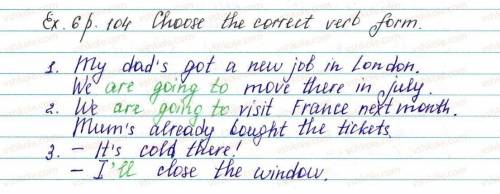 Ex. 6 p. 104 Choose the correct verb form.
1. My dad's got a new job in London.
We are going to move there in July.
2. We are going to visit France next month.
Mum's already bought the tickets.
3. – It's cold there!
– I'll close the window.